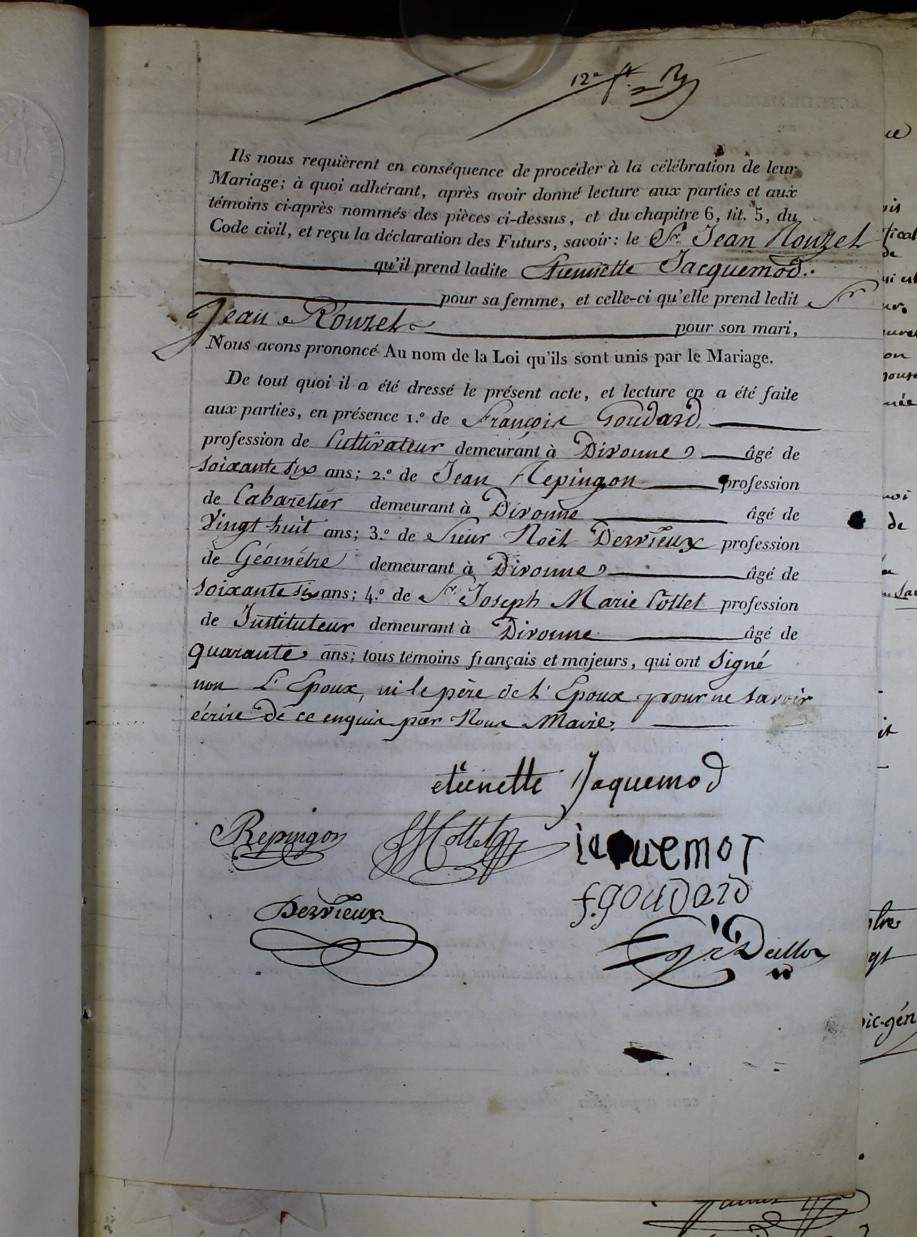 12e
Ils nous requièrent en conséquence de procéder à la célébration de leur
Mariage; à quoi adhérant, après avoir donné lecture aux parties et aux
témoins ci-après nommés des pièces ci-dessus, et du chapitre 6, tit. 5, du
Code civil, et reçu la déclaration des Futurs, savoir: le Sr. Jean Rouzet
qu'il prend ladite Etiennette Jacquemod
pour sa femme, et celle-ci qu'elle prend ledit Sr
Jean Rouzet pour son mari,
Nous avons prononcé Au nom de la Loi qu'ils sont unis par le Mariage.
De tout quoi il a été dressé le présent acte, et lecture en a été faite
aux parties, en présence 1.º de François Goudard
profession de Cultivateur demeurant à Divonne âgé de
soixante six ans; 2.º de Jean Repingon profession
de Cabaretier demeurant à Divonne âgé de
Vingt huit ans; 3.º de Sieur Noël Dervieux profession
de Géomètre demeurant à Divonne âgé de
soixante six ans; 4.º de Sr. Joseph Marie Cottet profession
de Instituteur demeurant à Divonne âgé de
quarante ans; tous témoins français et majeurs, qui ont signé
non L'Epoux, ni le père de l'Epoux pour ne savoir
écrire de ce enquis par Nous Maire.
etienette Jaquemod
Repingon JMCottet jaquemot
f. goudard
Dervieux